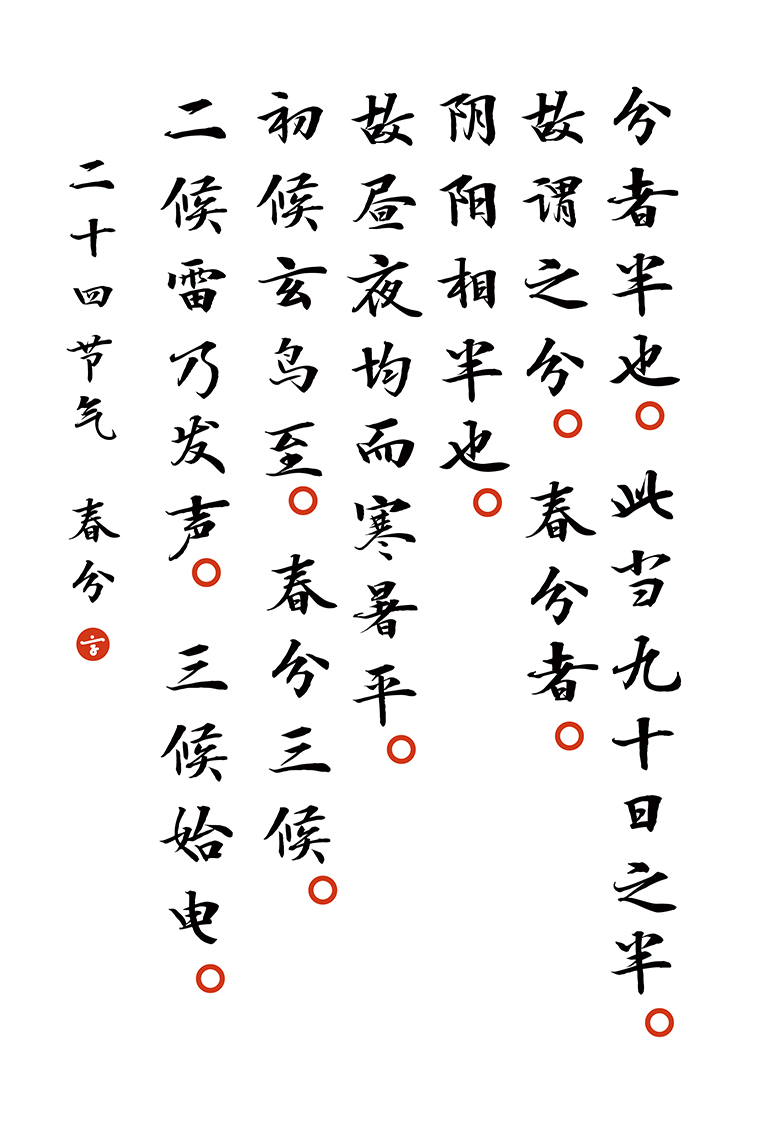 分者半也。此当九十日之半。
故谓之分。春分者。
阴阳相半也。
故昼夜均而寒暑平。
初候玄鸟至。春分三候。
二候雷乃发声。三候始电。
二十四节气 春分